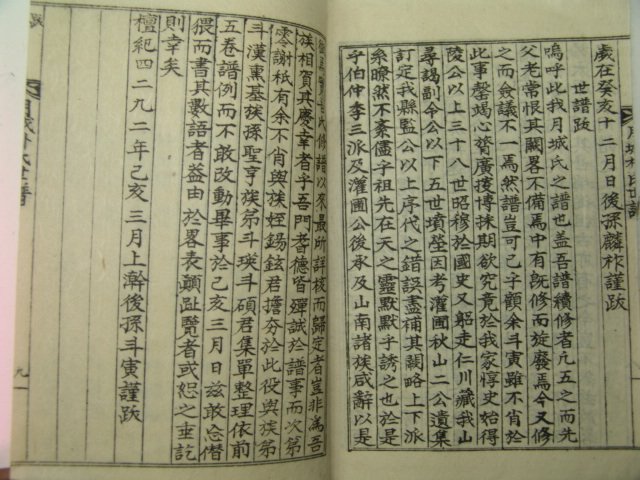 歲在癸亥十二月日後孫麟祚謹跋
世譜跋
嗚呼此我月城氏之譜也盖吾譜續修者凡五之而先
父老常恨其闕畧不備焉中有旣修而旋廢焉今又修
之而僉議不一焉然譜豈可已乎顧余斗寅雖不肖於
此事罄竭心蕡廣援博採期欲究竟於我家惇史始得
陵公以上三十八世昭穆於國史又躬走仁川藏我山
尋謁副令公以下五世墳塋因考灌圃秋山二公遺集
訂定我縣監公以上序代之錯誤盡補其闕略上下派
系瞭然不紊儘乎祖先在天之靈默默乎誘之也於是
乎伯仲季三派及灌圃公後承及山南諸族咸辭以是
譜是實吾此修譜以來最所詳核而歸定者豈非爲吾
族相賀其慶幸者乎吾門耆德皆殫誠於譜事而次第
零謝秪有余不肖與族姪錫鉉君擔夯於此役與族弟
斗漢薰基族孫聖亨族弟斗瑛斗碩君集單整理依前
五卷譜例而不敢改動畢事於己亥三月日玆敢忘僭
猥而書其數語者盖由於畧表顚趾覽者或恕之並訖
則幸矣
檀紀四二九二年己亥三月上澣後孫斗寅謹跋
九